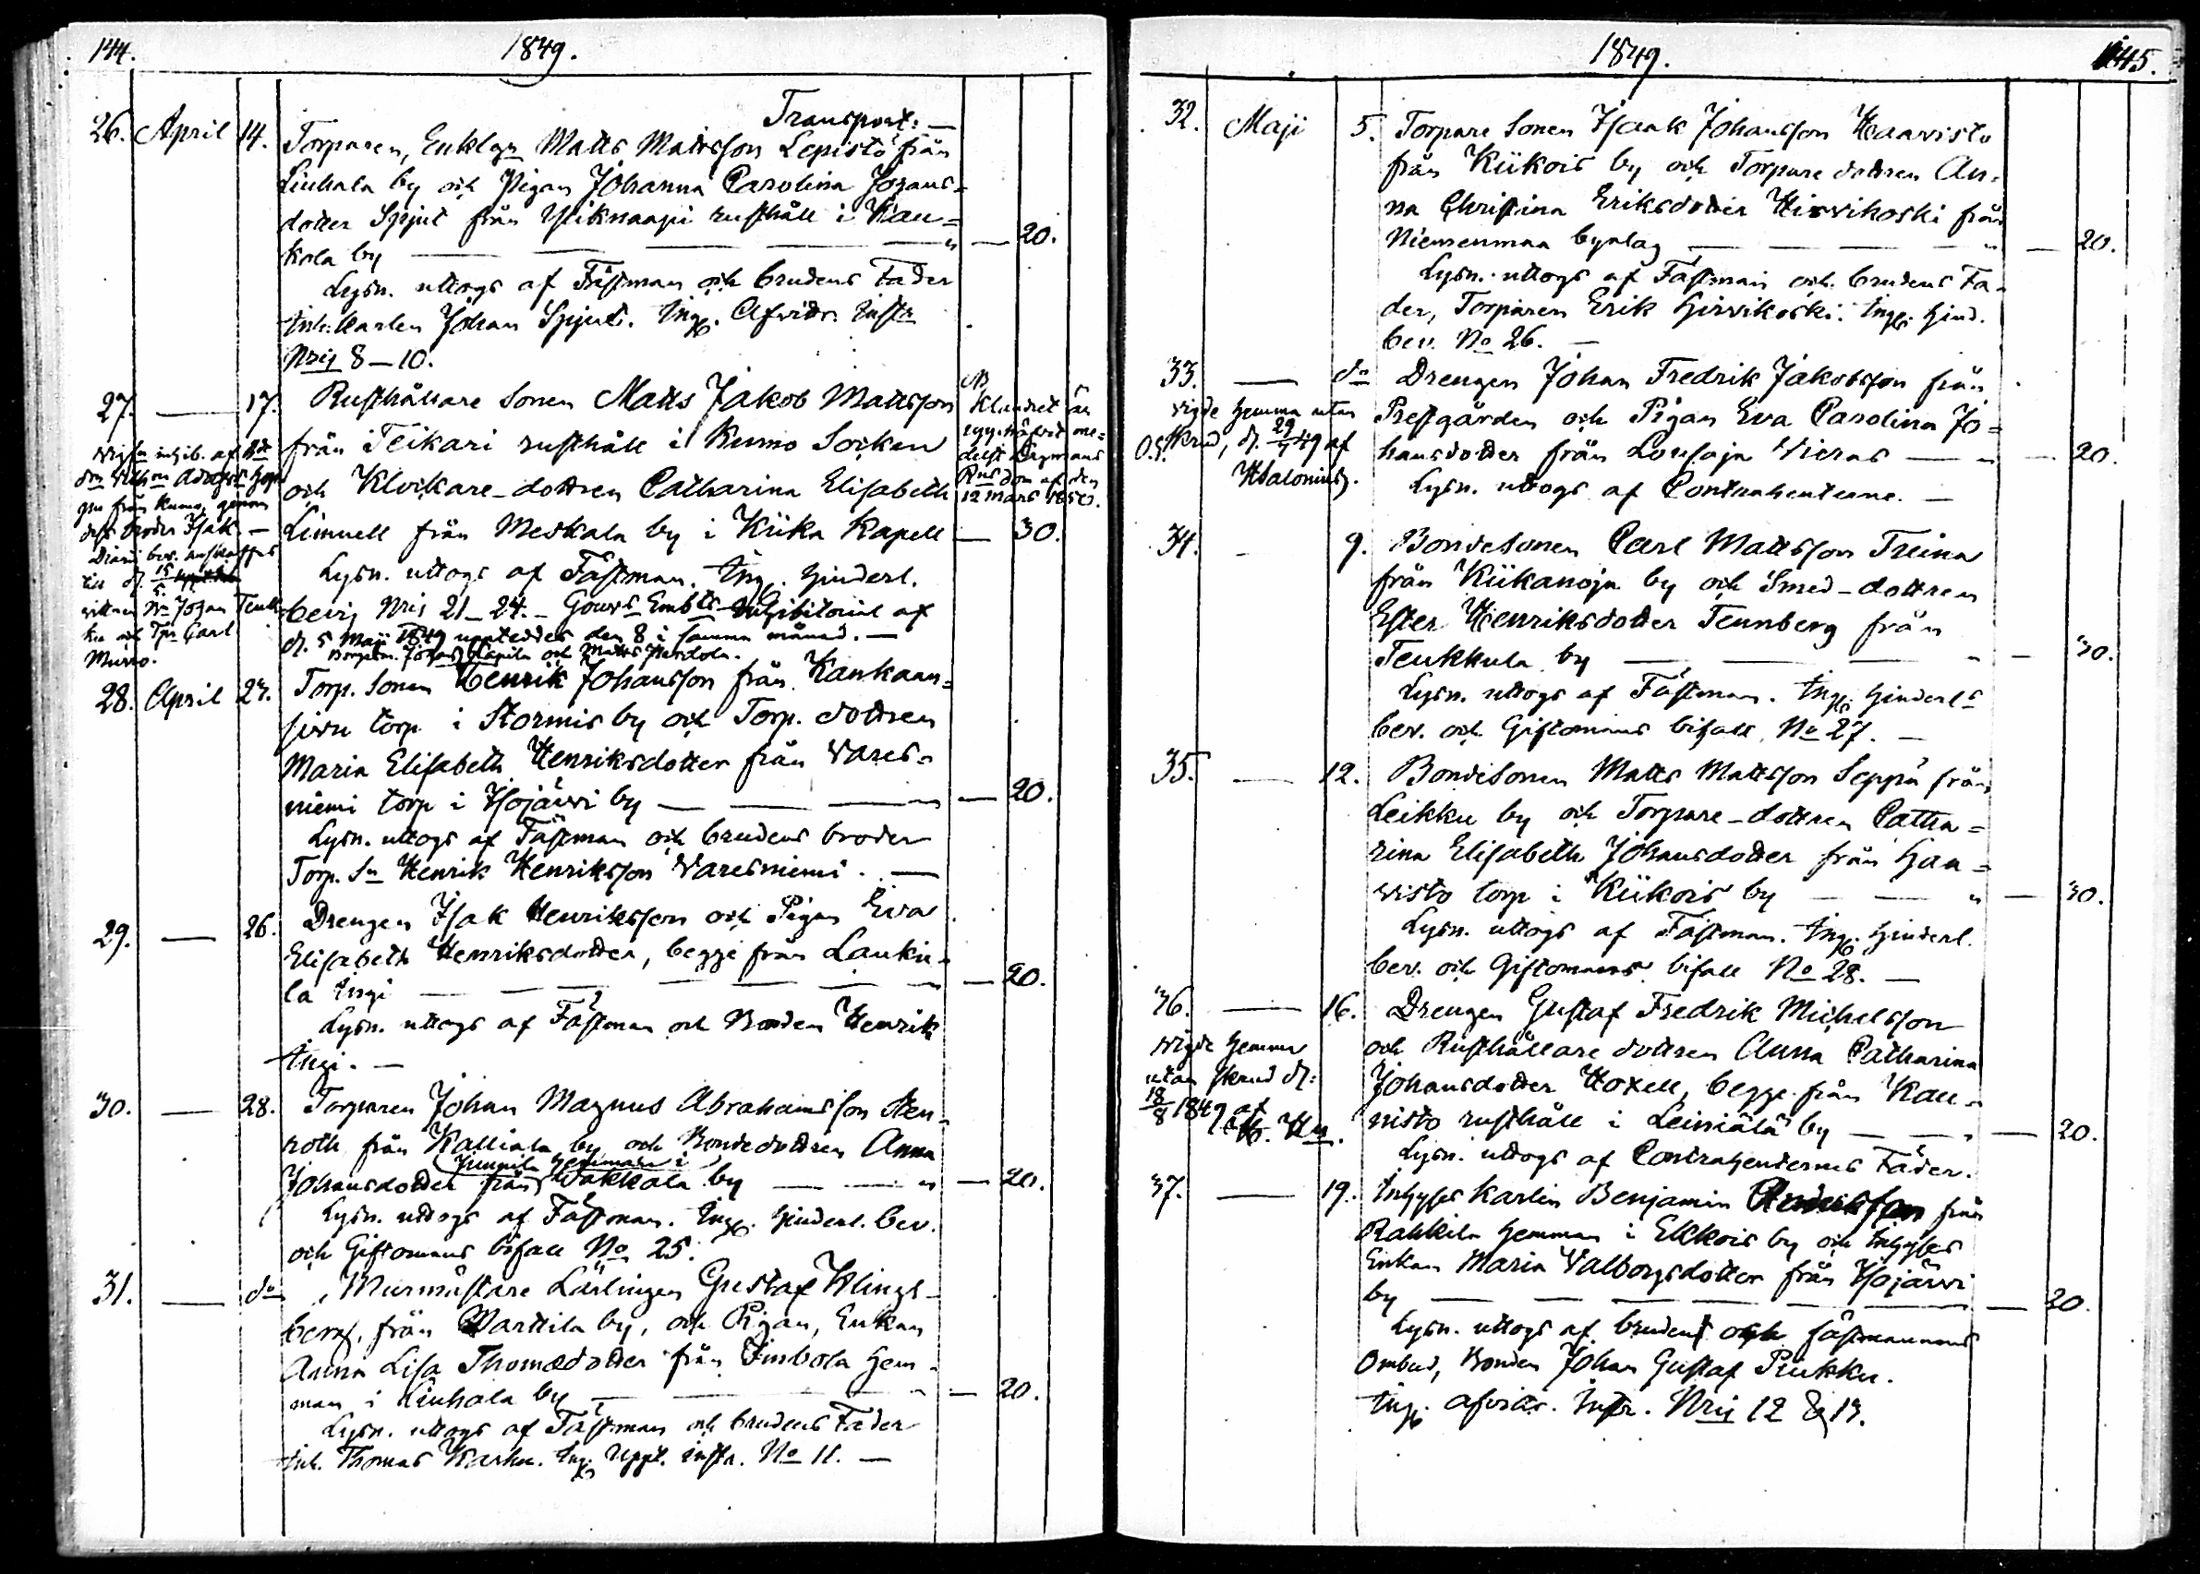 144.
1849.
Transport: —
26. April 14. Torparen, Enklgn Matts Mattsson Lepistö från
Liuhala by och Pigan Johanna Carolina Johans-
dotter Spjut från Yliknaapi rusthåll i Kau-
kola by — — — — 20.
Lysn. uttogs af Fästman och brudens Fader
Inh. Karlen Johan Spjut. Ing. Afvittr. Instr.
Nris 8–10.
27. — 17. Rusthållare Sonen Matts Jakob Mattsson
från Teikari rusthåll i Kumo Socken
och Klockare-dottren Catharina Elisabeth
Limnell från Meskala by i Kiika Kapell — 30.
Lysn. uttogs af Fästman. Ing. Hinderl.
bevis Nris 21–24. – Gouvs Embts Inhibitorial af
d. 5 Maji 1849 uppteddes den 8 i samma månad. —
NB
Klandret är
medelst
den
12 Mars 1850.
från Kumo, genom
dess broder Isak —
Carl
Murro.
28. April 23. Torp. Sonen Henrik Johansson från Kankaan-
torp i Stormis by och Torp. dottren
Maria Elisabeth Henriksdotter från Vares-
niemi torp i Hojärvi by — — — 20.
Lysn. uttogs af Fästman och brudens broder
Torp. Sn Henrik Henriksson Varesniemi. —
29. — 26. Drengen Isak Henriksson och Pigan Eva
Elisabeth Henriksdotter, begge från Lauku-
la Ingi — — — — 20.
Lysn. uttogs af Fästman och Bonden Henrik
Ingi. —
30. — 28. Torparen Johan Magnus Abrahamsson Sten-
roth från Kalliala by och Bondedottren Anna
Junnila Hemman i
Johansdotter från Vakkala by — — 20.
Lysn. uttogs af Fästman. Ing. Hinderl. bev.
och Giftomans bifall No 25.
31. — do Murmästare Lärlingen Gustaf Klings-
berg, från Marttila by, och Pigan, Enkan
Anna Lisa Thomædotter från Simbola Hem-
man i Liuhala by — — — 20.
Lysn. uttogs af Fästman och brudens Fader
Inh. Thomas Karhu. Ing. Uppt. instr. No 11. —
1849.
145.
32. Maji 5. Torpare Sonen Isaak Johansson Haavisto
från Kiikois by och Torpare dottren An-
na Christina Eriksdotter Hirvikoski från
Niemenmaa bylag — — — 20.
Lysn. uttogs af Fästman och brudens Fa-
der, Torparen Erik Hirvikoski. Ing. Hind.
bev. No 26. —
33. — do Drengen Johan Fredrik Jakobsson från
Prestgården och Pigan Eva Carolina Jo-
hansdotter från Lousaja Vieras — — 20.
Lysn. uttogs af Contrahenterne. —
Vigde hemma utan
skrud, d. 29/7 49 af
O.S. Wdalonius.
34. — 9. Bondesonen Carl Mattsson Treina
från Kiikanoja by och Smed-dottren
Ester Henriksdotter Tennberg från
Teukkula by — — — 30.
Lysn. uttogs af Fästman. Ing. Hinderls
bev. och Giftomans bifall, No 27. —
35. — 12. Bondesonen Matts Mattsson Seppä från
Leikku by och Torpare-dottren Catha-
rina Elisabeth Johansdotter från Haa-
visto torp i Kiikois by — — — 30.
Lysn. uttogs af Fästman. Ing. Hinderl.
bev. och Giftomans bifall No 28. —
36. — 16. Drengen Gustaf Fredrik Michelsson
och Rusthållare dottren Anna Catharina
Johansdotter Hoxell, begge från Kau-
nisto rusthåll i Leiniälä by — — — 20.
Lysn. uttogs af Contrahenternes Fäder.
Vigde hemma
utan skrud d:
18/8 1849 af
37. — 19. Inhyses Karlen Benjamin Andersson från
Rahkila Hemman i Ekkois by och Inhyses
Enkan Maria Valborgsdotter från Hojärvi
by — — — — — 20.
Lysn. uttogs af bruden och fästmannens
Ombud, Bonden Johan Gustaf Piukku.
Ing. afvittr. Instr. Nris 12 & 13.